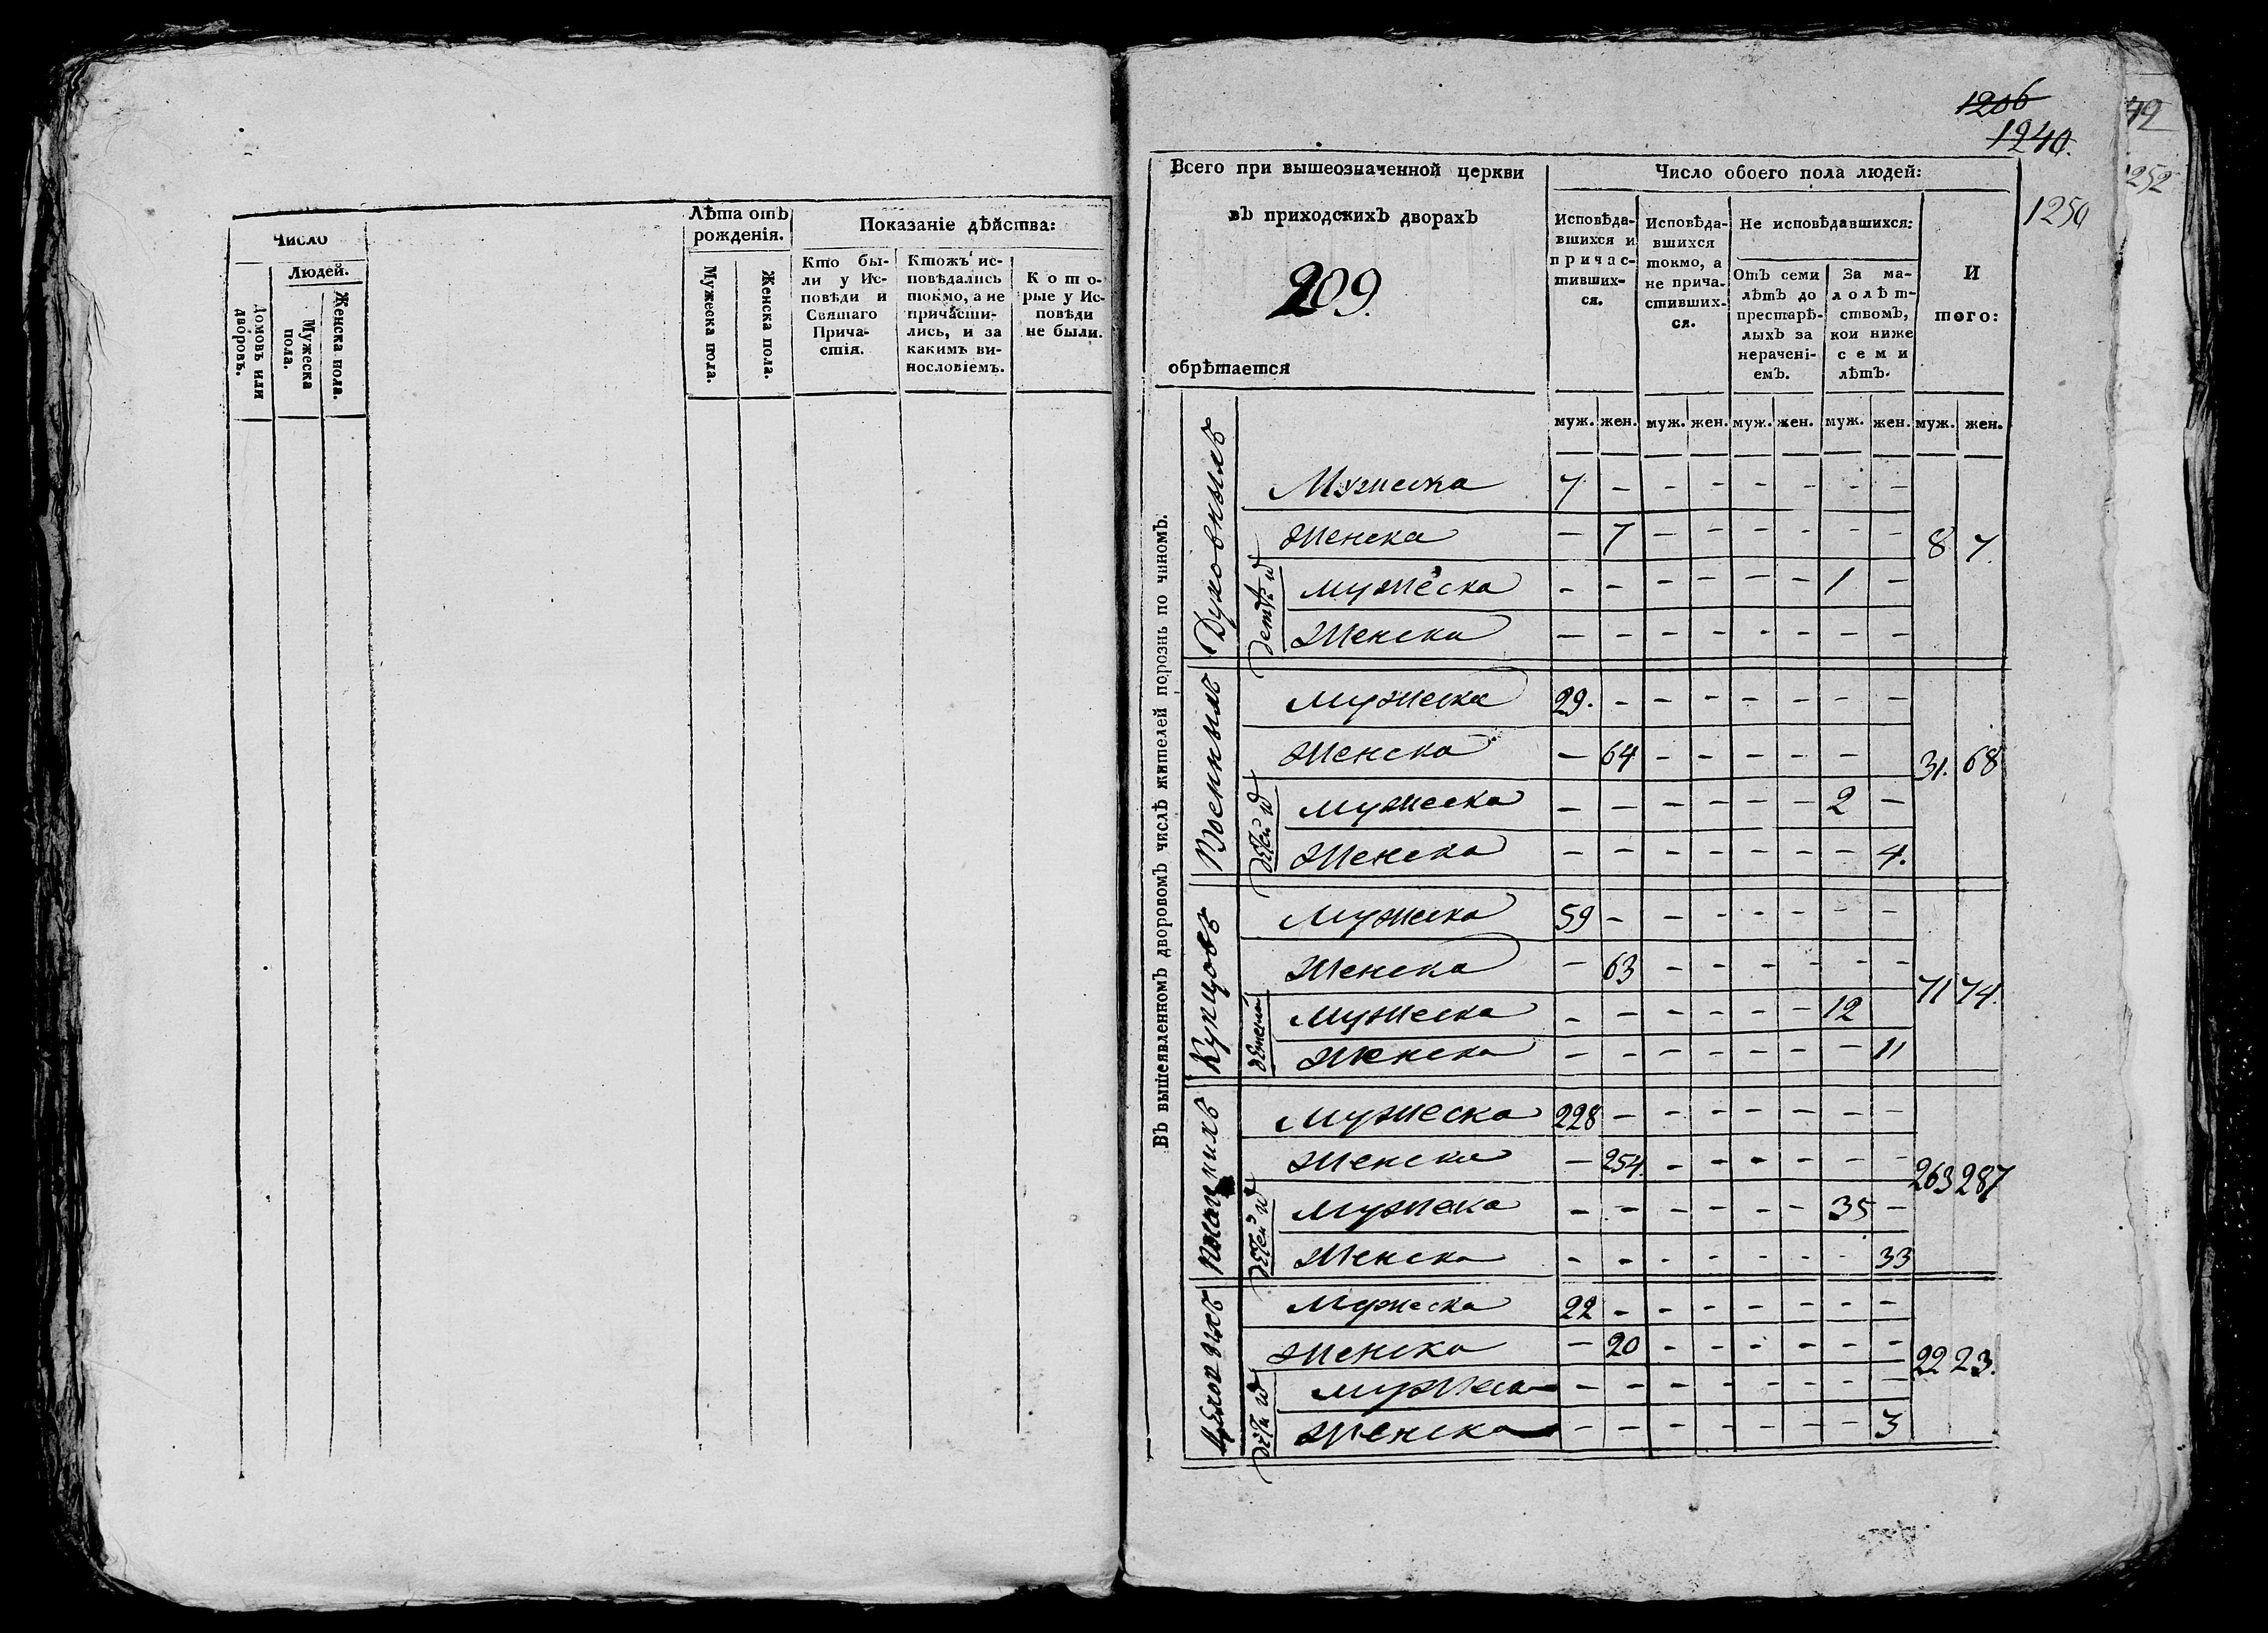 Число
Людей.
Домовъ или дворовъ.
Мужеска пола.
Женска пола.
Лѣта отъ
рожденія.
Мужеска пола.
Женска пола.
Показаніе дѣйства:
Кто бы-
ли у Ис-
повѣди и
Святаго
Прича-
стія.
Ктожъ ис-
повѣдались
токмо, а не
причасти-
лись, и за
какимъ ви-
нословіемъ.
Кото-
рые у Ис-
повѣди
не были.
1206
1240.
1250
42
252
Всего при вышеозначенной церкви
въ приходскихъ дворахъ
209.
обрѣтается
Число обоего пола людей:
Исповѣда-
вшихся и
причас-
тивших-
ся.
Исповѣда-
вшихся
токмо, а
не прича-
стивших-
ся.
Не исповѣдавшихся:
Отъ семи
лѣтъ до
престарѣ-
лыхъ за
нерачені-
емъ.
За ма-
лолѣт-
ствомъ,
кои ниже
семи
лѣтъ.
И
того:
муж. жен. муж. жен. муж. жен. муж. жен. муж. жен.
Въ вышеявленномъ дворовомъ числѣ жителей порознь по чиномъ.
Духовныхъ
Мужеска 7 - - - - - - -
Женска - 7 - - - - - -
8 7.
мужеска - - - - - - 1 -
Женска - - - - - - - -
Военныхъ
мужеска 29. - - - - - - -
Женска - 64 - - - - -
31. 68
мужеска - - - - - - 2 -
Женска - - - - - - - 4.
Купцовъ
Мужеска 59 - - - - - - -
Женска - 63 - - - - - -
71 74.
детей
мужеска - - - - - - 12
Женска - - - - - - - 11
мужеска 228 - - - - - - -
Женска - 254. - - - - - -
263 287
мужеска - - - - - - 35 -
Женска - - - - - - - 33
Мужеска 22 - - - - - - -
Женска - 20 - - - - - -
22 23.
мужеска - - - - - - - -
Женска - - - - - - - 3